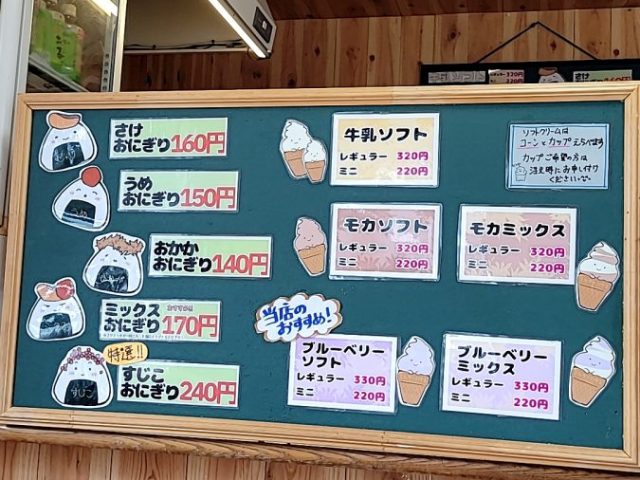 さけ
おにぎり160円
うめ
おにぎり150円
おかか
おにぎり140円
ミックス
おにぎり170円
特選!!
すじこ
おにぎり240円
すじこ
牛乳ソフト
レギュラー 320円
ミニ 220円
モカソフト
レギュラー 320円
ミニ 220円
モカミックス
レギュラー 320円
ミニ 220円
当店の
おすすめ!
ブルーベリー
ソフト
レギュラー 330円
ミニ 220円
ブルーベリー
ミックス
レギュラー 330円
ミニ 220円
ソフトクリームは
コーンとカップえらべます
カップご希望の方は
注文時にお申し付け
くださいませ